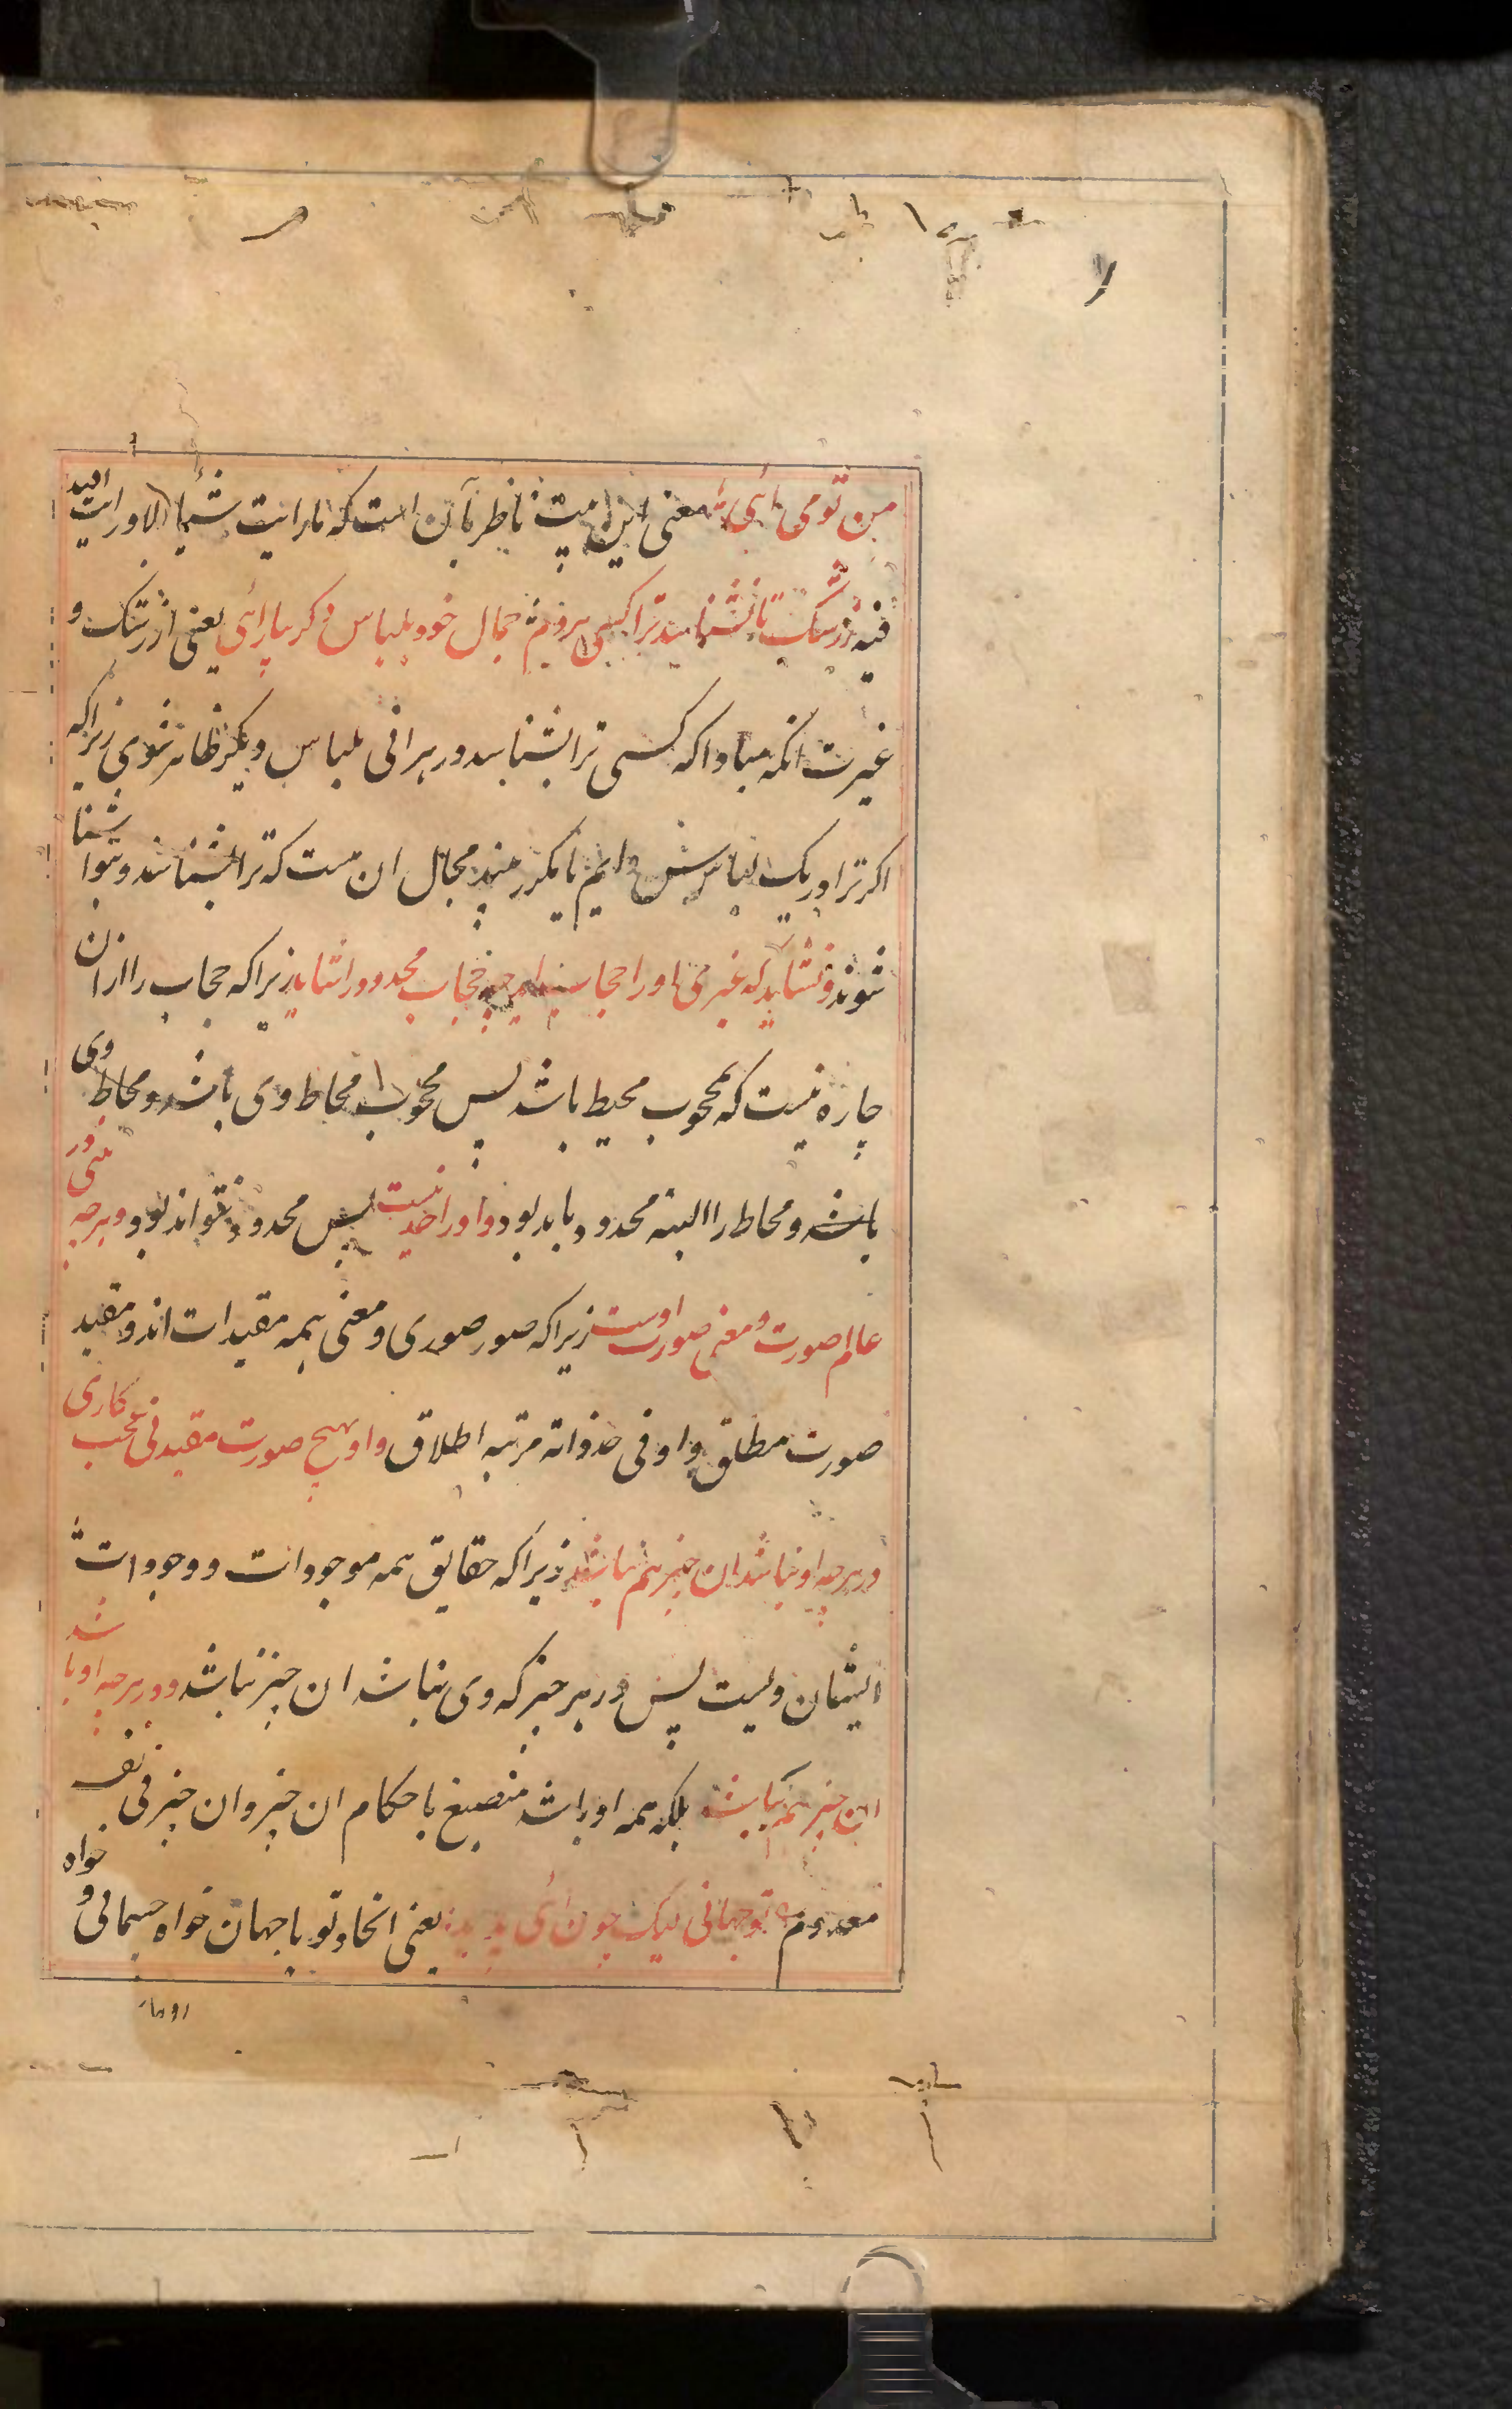 من تو می آئی معنی این بیت ناظر بآن است که ما رایت شیأ الا ورایت الله
فیه ز رشک تا نشناسد ترا کسی هر دم جمال خود بلباس دگر بیارائی یعنی از رشک و
غیرت انکه مبادا که کسی ترا بشناسد در هر انی بلباس دیگر ظاهر شوی زیراکه
اگر ترا در یک لباس دایم یا مکرر بینند مجال ان هست که ترا بشناسند و بتو اشنا
شوند و نشاید که غیری او را حجاب چه حجاب محدود را شاید زیراکه حجاب را از ان
چاره نیست که بمحجوب محیط باشد پس محجوب محاط وی باشد و محاط وی
باشد و محاط را البته محدود باید بود و او را حد نیست پس محدود نتواند بود و هرچه بینی در
عالم صورت و معنی صورت اوست زیراکه صور صوری و معنی همه مقیدات اند و مقید
صورت مطلق و او فی حد ذاته مرتبه اطلاق و او بهیچ صورت مقید نی عجب کاری
در هرچه او نباشد ان چیز هم نباشد زیراکه حقایق همه موجودات و وجودات
ایشان ویست پس در هر چیز که وی نباشد ان چیز نباشد و در هرچه او باشد
ان چیز هم نباشد بلکه همه او باشد منصبغ باحکام ان چیز و ان چیز فی نفسه
معدوم تو جهانی لیک چون آئی پدید یعنی اتحاد تو با جهان خواه جسمانی و خواه
روحا